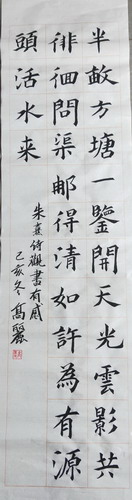 半畝方塘一鑒開天光雲影共
徘徊問渠那得清如許為有源
頭活水来
朱熹詩觀書有感
己亥冬高麗